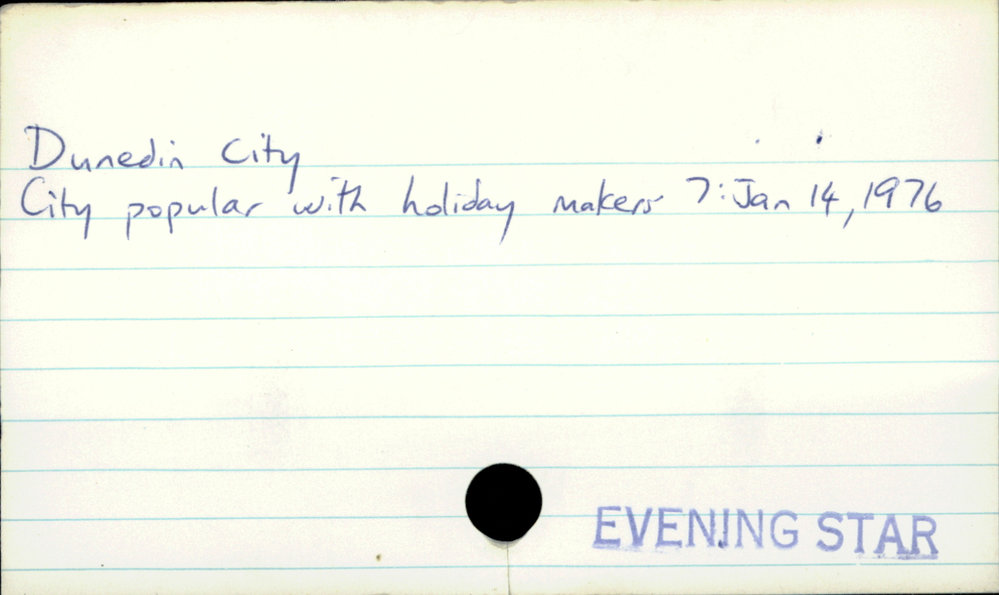 Dunedin City
City popular with holiday makers 7: Jan 14, 1976
EVENING STAR